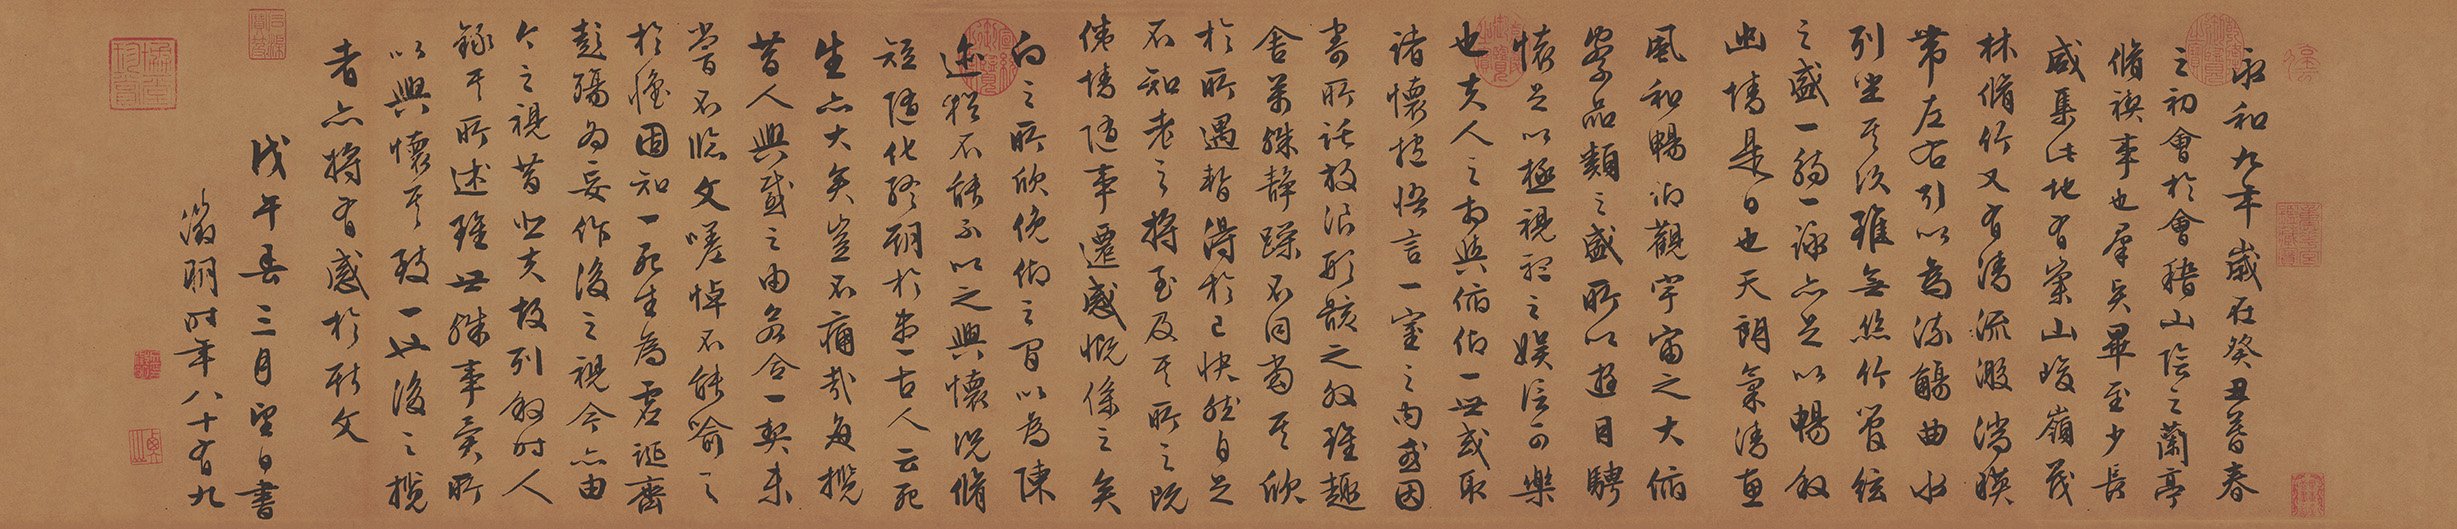 永和九年歲在癸丑暮春
之初會於會稽山陰之蘭亭
脩禊事也群賢畢至少長
咸集此地有崇山峻嶺茂
林脩竹又有清流激湍暎
帶左右引以為流觴曲水
列坐其次雖無絲竹管絃
之盛一觴一詠亦足以暢敘
幽情是日也天朗氣清惠
風和暢仰觀宇宙之大俯
察品類之盛所以遊目騁
懷足以極視聽之娛信可樂
也夫人之相與俯仰一世或取
諸懷抱悟言一室之內或因
寄所託放浪形骸之外雖趣
舍萬殊靜躁不同當其欣
於所遇暫得於己快然自足
不知老之將至及其所之既
倦情隨事遷感慨係之矣
向之所欣俛仰之間以為陳
迹猶不能不以之興懷況脩
短隨化終期於盡古人云死
生亦大矣豈不痛哉每攬
昔人興感之由若合一契未
嘗不臨文嗟悼不能喻之
於懷固知一死生為虛誕齊
彭殤為妄作後之視今亦由
今之視昔悲夫故列敘時人
錄其所述雖世殊事異所
以興懷其致一也後之攬
者亦將有感於斯文
戊午春三月望日書
徵明時年八十有九